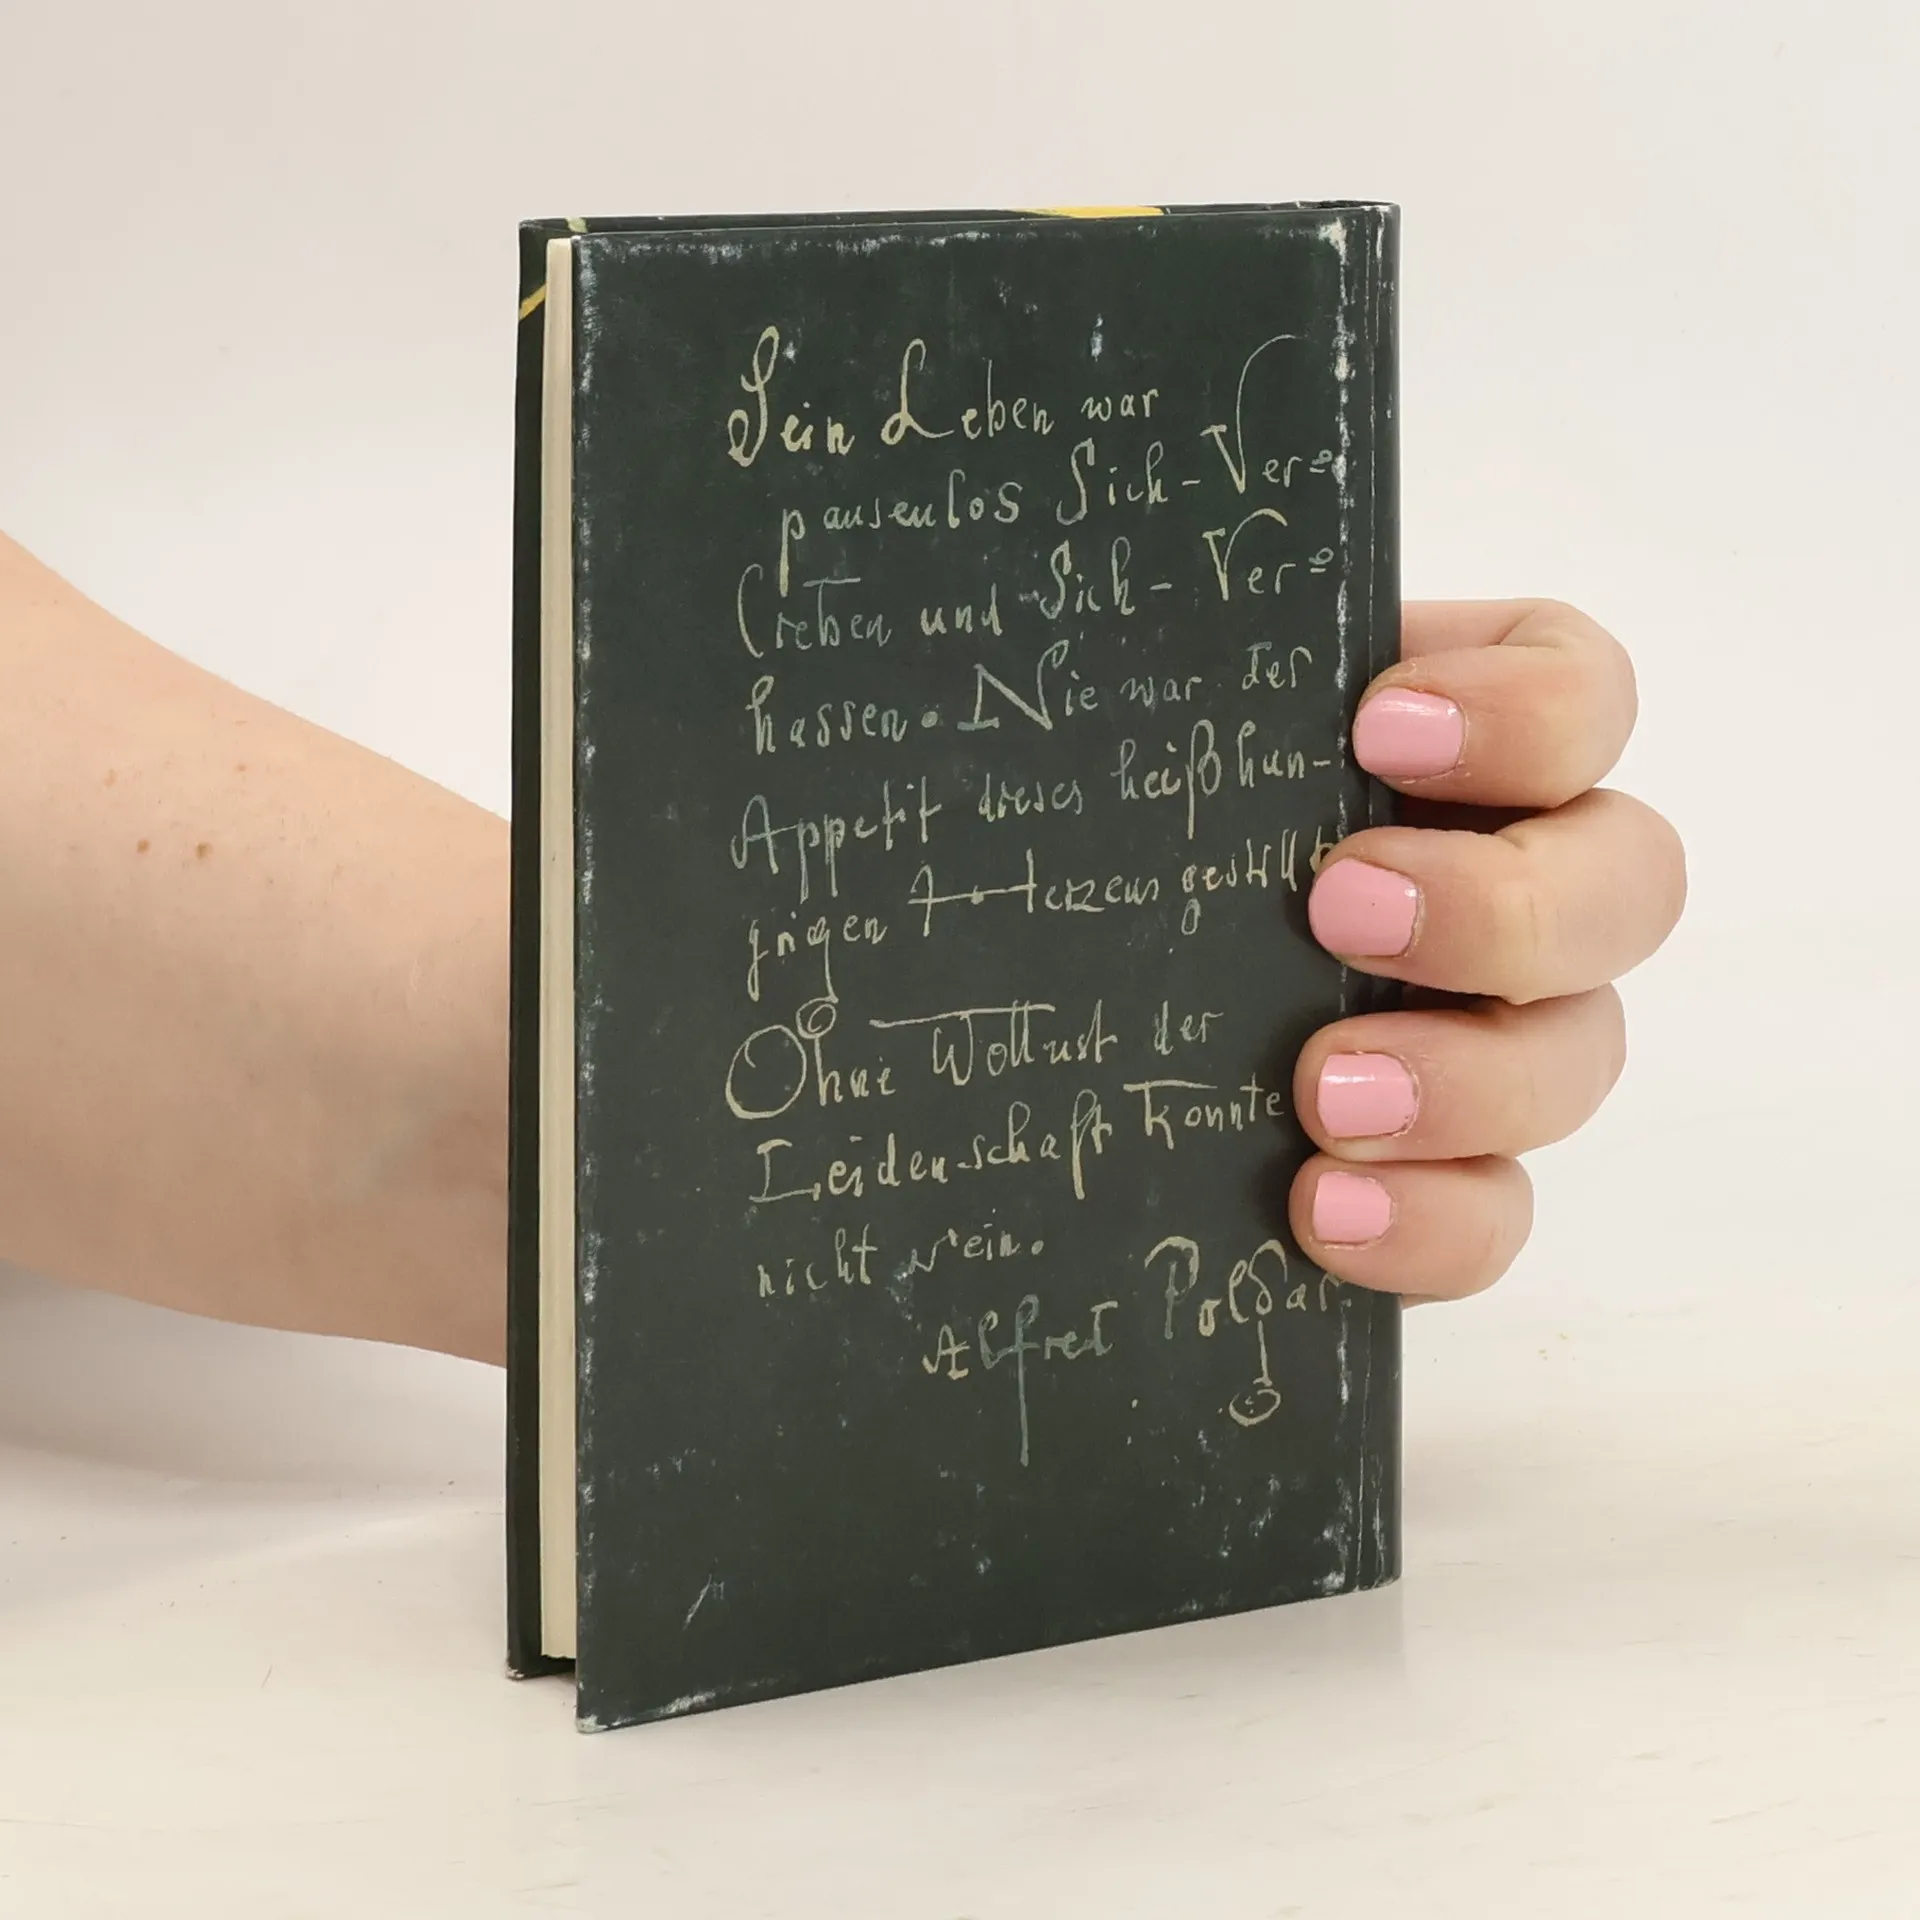 Sein Leben war
pausenlos Sich-Ver=
lieben und Sich-Ver=
hassen. Nie war der
Appetit dieses heißhun-
grigen Herzens gestillt
Ohne Wollust der
Leidenschaft konnte
nicht sein.
Alfred Polgar